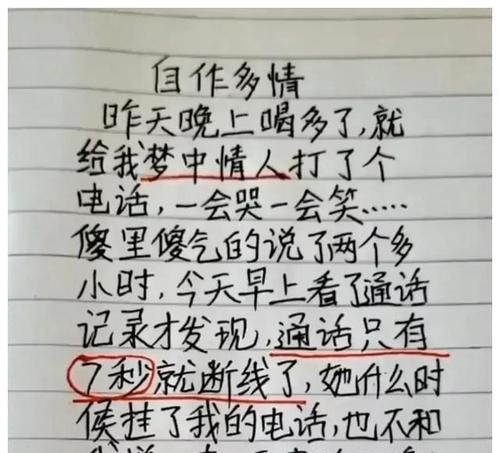 自作多情
昨天晚上喝多了,就
给我梦中情人打了个
电话,一会哭一会笑.....
傻里傻气的说了两个多
小时,今天早上看了通话
记录才发现,通话只有
7秒就断线了,她什么时
侯挂了我的电话,也不和